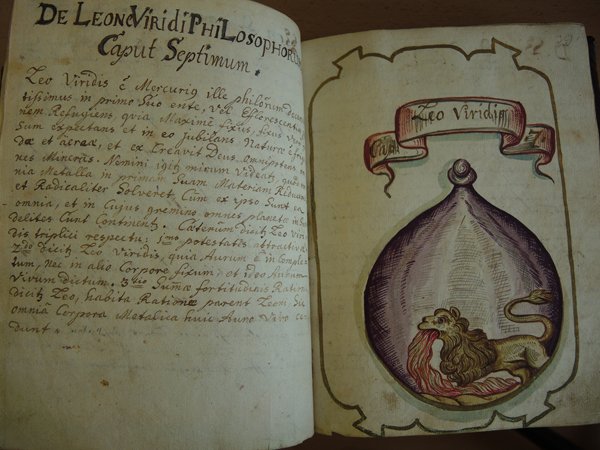 DE LEONE VIRIDI PHILOSOPHORUM
Caput Septimum.
Leo Viridis ê Mercuriq ille philôrum
tissimus in primo Suo ente, vel Efflorescentia
nem Refugiens, quia Maximè fixus, fixus
Sum expectans et in eo Jubilans Natura ê
dæ et aëreæ, et ex Creavit Deus omnipotens
nes Mineris. Nemini igitr mirum Videat,
nia Metalla in primam Suam Materiam Reducere
et Radicaliter Solveret. Cùm ex ypso Sunt ea
omnia, et in Cujus gremino omnes planetæ in
delites Cunt Continent. Cæterùm dicit Leo Viri
dis triplici respectu: 1mo potestatis attractivæ
2do dicit Leo Viridis, quia Aurum ê in Comple
tum, nec in alio Corpore fixum, et ideo Aurum
Vivum dictum. 3tio Sumæ fortitudinis Ratione
dicit Leo, habita Ratione parent Leoni, Sic
omnia Corpora Metalica huic Auro Vivo ce
dunt
Leo Viridis
Cap. 7